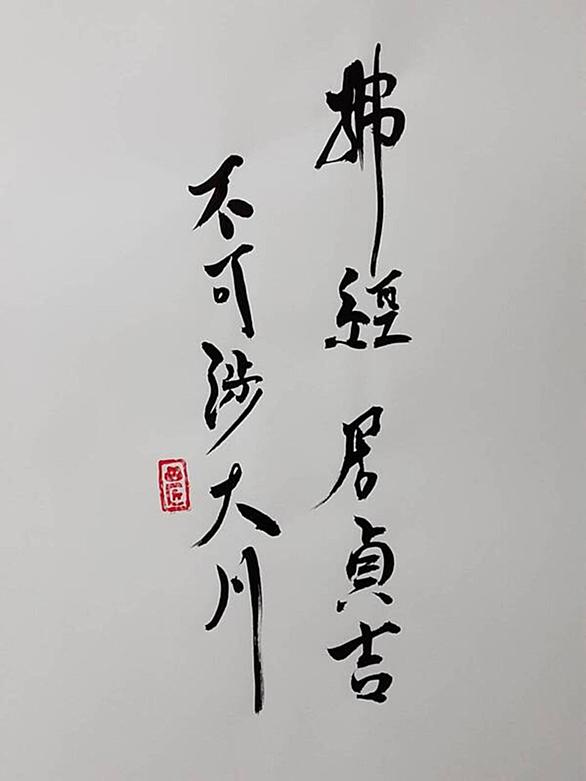 拂經居貞吉
不可涉大川